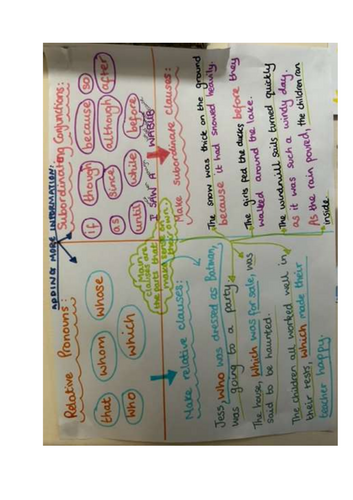 ADDING MORE INFORMATION:
Relative Pronouns:
that
whom
whose
who
which
Subordinating Conjunctions:
if
though
because
so
as
since
although
after
until
while
before
I SAW A WABUB
Main
clauses are
the parts that
make sense on
their own.
Make relative clauses:
Jess, who was dressed as Batman,
was going to a party
The house, which was for sale, was
said to be haunted.
The children all worked well in
their tests, which made their
teacher happy.
Make subordinate clauses:
The snow was thick on the ground
because it had snowed heavily.
The girls fed the ducks before they
walked around the lake.
The windmill sails turned quickly
as it was such a windy day.
As the rain poured, the children ran
inside.